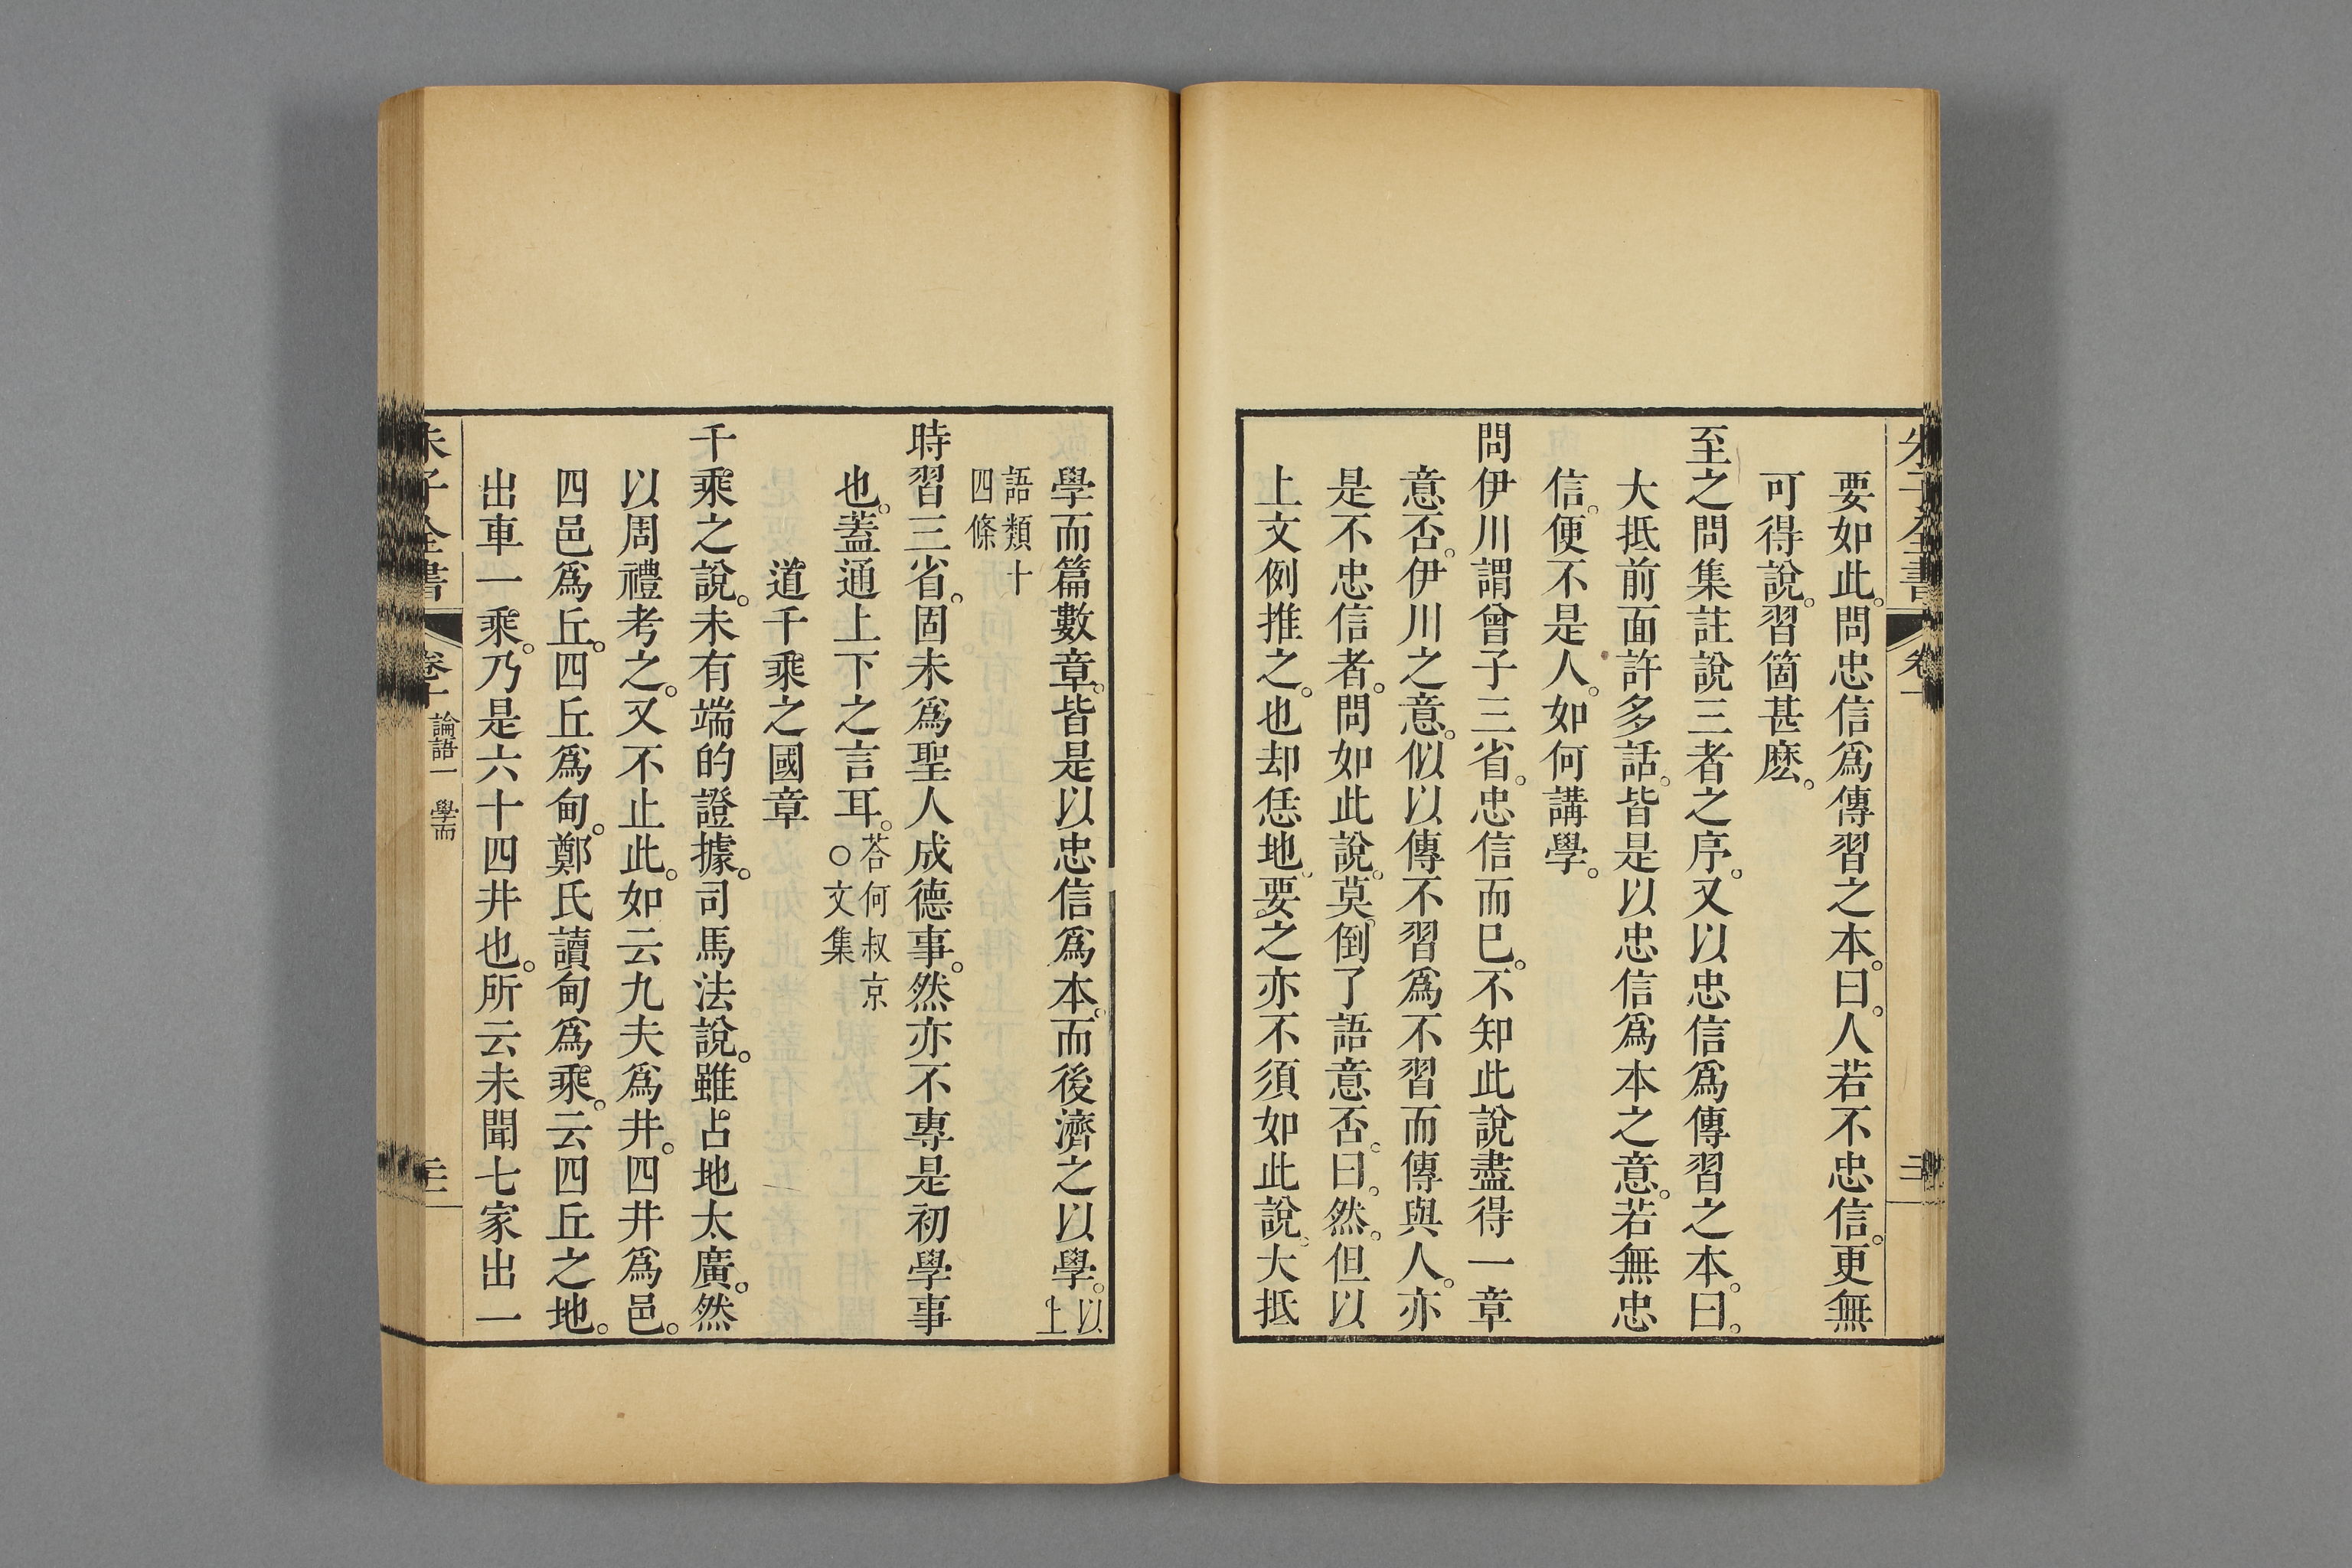 要如此。問忠信爲傳習之本。曰。人若不忠信。更無
可得說。習箇甚麽。
至之問集註說三者之序。又以忠信爲傳習之本。曰。
大抵前面許多話。皆是以忠信爲本之意。若無忠
信。便不是人。如何講學。
問伊川謂曾子三省。忠信而巳。不知此說盡得一章
意否。伊川之意。似以傳不習爲不習而傳與人。亦
是不忠信者。問如此說。莫倒了語意否。曰。然。但以
上文例推之。也却恁地。要之亦不須如此說。大抵
學而篇數章。皆是以忠信爲本。而後濟之以學。以上
語類十
四條
時習三省。固未爲聖人成德事。然亦不專是初學事
也。蓋通上下之言耳。荅何叔京
○文集
道千乘之國章
千乘之說。未有端的證據。司馬法說。雖占地太廣。然
以周禮考之。又不止此。如云九夫爲井。四井爲邑。
四邑爲丘。四丘爲甸。鄭氏讀甸爲乘。云四丘之地。
出車一乘。乃是六十四井也。所云未聞七家出一
朱子全書
卷十
論語一 學而